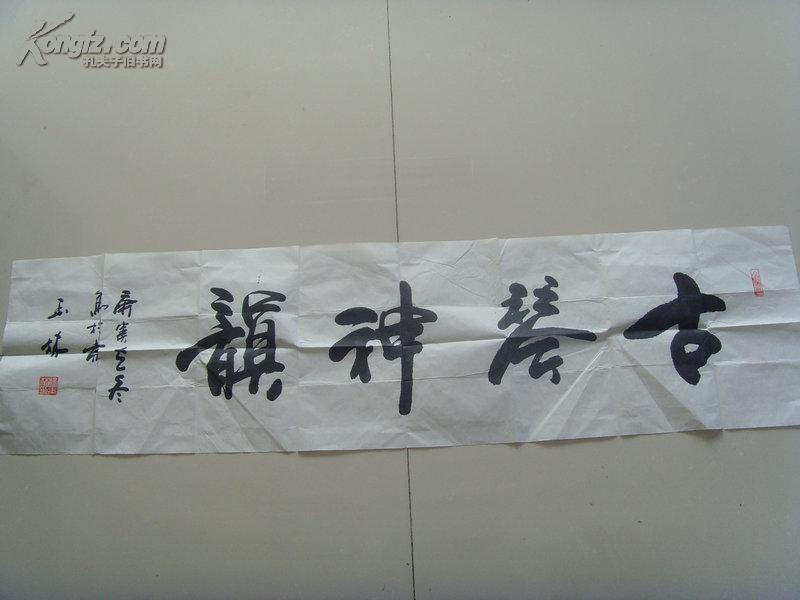 古琴神韻
庚寅之冬
書於京
玉林
Kongfz.com
孔夫子旧书网